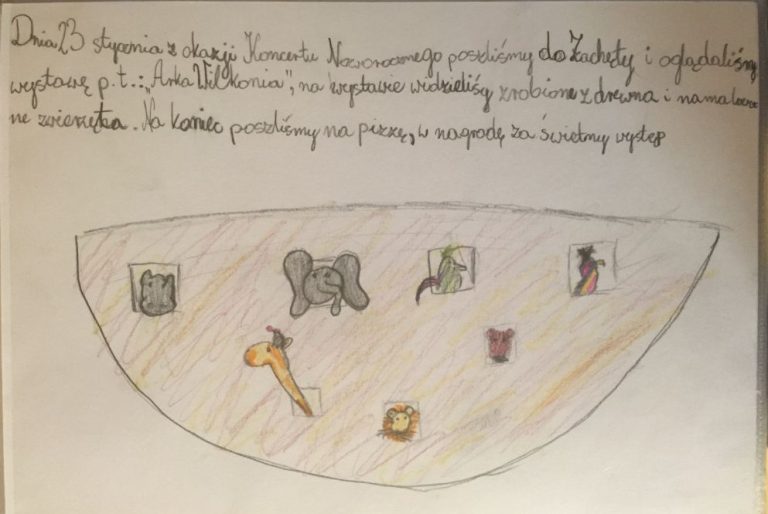 Dnia 23 stycznia z okazji Koncertu Noworocznego poszliśmy do Zachęty i oglądaliśmy
wystawę p.t.: „Arka Wilkonia", na wystawie widzieliśy zrobione z drewna i namalowa
ne zwierzęta. Na koniec poszliśmy na pizzę, w nagrodę za świetny występ